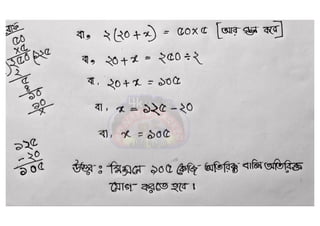 বা, ২(২০+x) = ৫০×৫ [আড় গুণন করে]
বা, ২০+x = ২৫০÷২
বা, ২০+x = ১০৫
বা, x = ১২৫-২০
বা, x = ১০৫
উত্তর: মিশ্রণে ১০৫ কেজি অতিরিক্ত বালি অতিরিক্ত
যোগ করতে হবে।
৫০
×৫
২৫০
১২৫
১০
১০
×
১২৫
-২০
১০৫